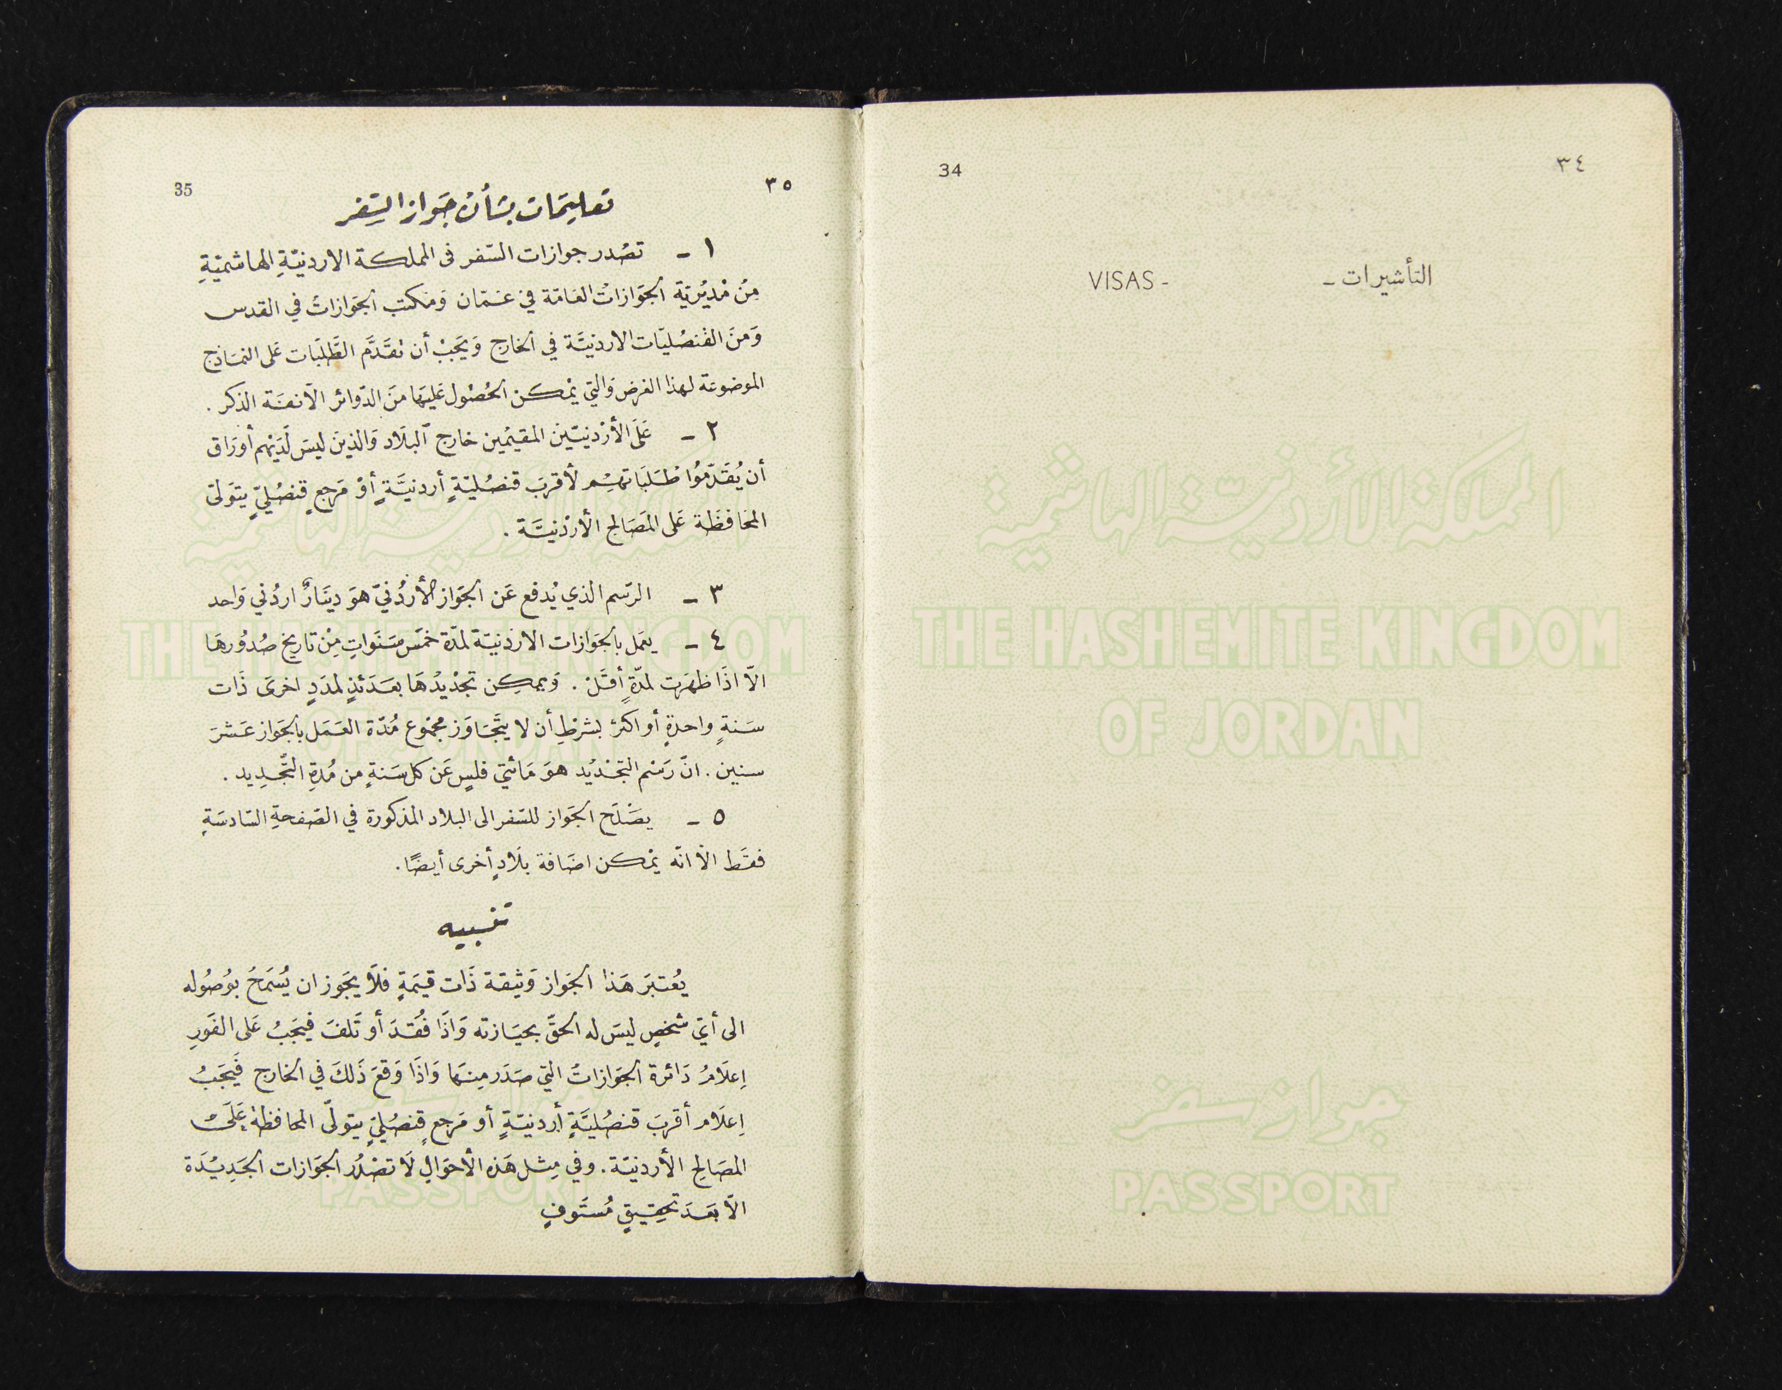 ٣٤
34
التأشيرات -
VISAS -
المملكة الأردنية الهاشمية
THE HASHEMITE KINGDOM
OF JORDAN
جواز سفر
PASSPORT
٣٥
35
تعليمَات بشأن جَواز السَّفر
١ - تصْدر جوازات السَّفر فى المملكة الاردنيّةِ الهاشميّةِ
مِنْ مْديْريّة الجَوَازات العَامّة في عَمّان وَمَكتب الجَوَازات في القدس
وَمنَ القنصُليّات الاردنيَّة في الخارج وَيَجبْ أن تقَدَّم الطَّلبَات عَلى النمَاذج
الموضوعَة لهذا الغرض وَالتي يمْكن الحُصْول عَليهَا منَ الدّوائر الآنفَة الذكر .
٢ - عَلَى الأرْدنيّين المقيْمين خارج البلَاد وَالذينَ ليسَ لَدَيْهم أورَاق
أن يُقَدّمُوا طَلَبَاتهم لأقربَ قنصُليّةٍ أردنيَّةٍ أوْ مَرجعٍ قنصُليٍّ يتوَلى
المحَافظَة عَلى المَصَالح الأرْدنيَّة .
٣ - الرسْم الذي يُدفع عَن الجَواز الأرْدُنيّ هوَ دينَارٌ اردُني وَاحد
٤ - يعمَل بالجَوَازات الاردنيّة لمدّة خمَس سَنَواتٍ مِنْ تاريخ صُدُورهَا
الاّ اذَا ظهَرت لمدّةٍ أقَلْ . وَيمكِن تجْديْدُهَا بعَدَئذٍ لمدَدٍ اخرىَ ذَات
سَنةٍ واحدةٍ أو اكثرْ بشرْطِ أن لا يتَجَاوَز مجمْوع مُدّة العَمَل بالجَواز عَشرَ
سنين . انّ رَسْم التجْديْد هوَ مَائتيّ فلسٍ عَن كل سَنةٍ من مُدةِ التّجديد .
٥ - يصْلَح الجَواز للسّفر الى البلاد المذكورة في الصّفحةِ السّادسَةِ
فقَط الاّ انّه يمْكن اضَافة بلَادٍ أخرى أيضًا .
تنبيه
يُعْتبرَ هَذا الجَواز وَثيقة ذَات قيمَةٍ فلَا يجَوز ان يُسْمَحُ بوُصُوله
الى أيّ شخصٍ ليسَ له الحقّ بحيَازته وَاذَا فُقدَ أو تَلفَ فيَجَبُ عَلى الفَورِ
إعلَامُ دَائرة الجَوَازاتُ التيّ صَدَر مِنهَا وَاذَا وَقعَ ذَلكَ في الخارج فَيَجَبُ
إعلَام أقربَ قنصُليَّةٍ أردنيّةٍ أو مَرجعٍ قنصُليٍّ يتولّى المحافظةْ عَلَى
المصَالح الأردنيّة . وفي مِثل هَذه الأحوَالِ لَا تصْدُر الجَوَازات الجَديْدَة
الاّ بعَدَ تحقيقٍ مُستَوفٍ
المملكة الأردنية الهاشمية
THE HASHEMITE KINGDOM
OF JORDAN
جواز سفر
PASSPORT